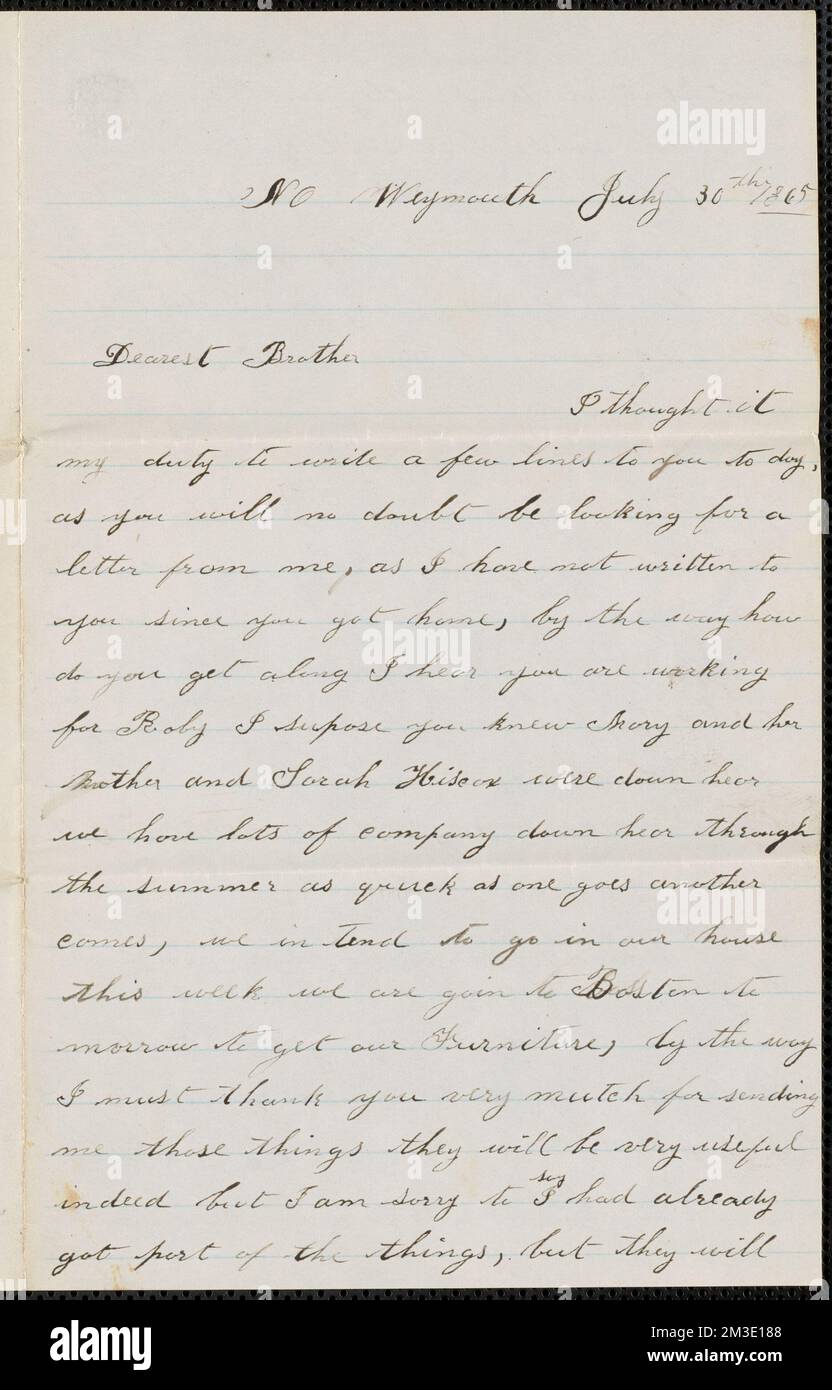 No Weymouth July 30th 1865
Dearest Brother
I thought it
my duty to write a few lines to you to day,
as you will no doubt be looking for a
letter from me, as I have not written to
you since you got home, by the way how
do you get along I hear you are working
for Roby I supose you knew Mary and her
Mother and Sarah Hiscox were down hear
we have lots of company down hear through
the summer as quick as one goes another
comes, we in tend to go in our house
this week we are goin to Boston to
morrow to get our Furniture, by the way
I must thank you very mutch for sending
me those things they will be very useful
indeed but I am sorry to say I had already
got part of the things, but they will
alamy
a
alamy
Image ID: 2M3E188
www.alamy.com